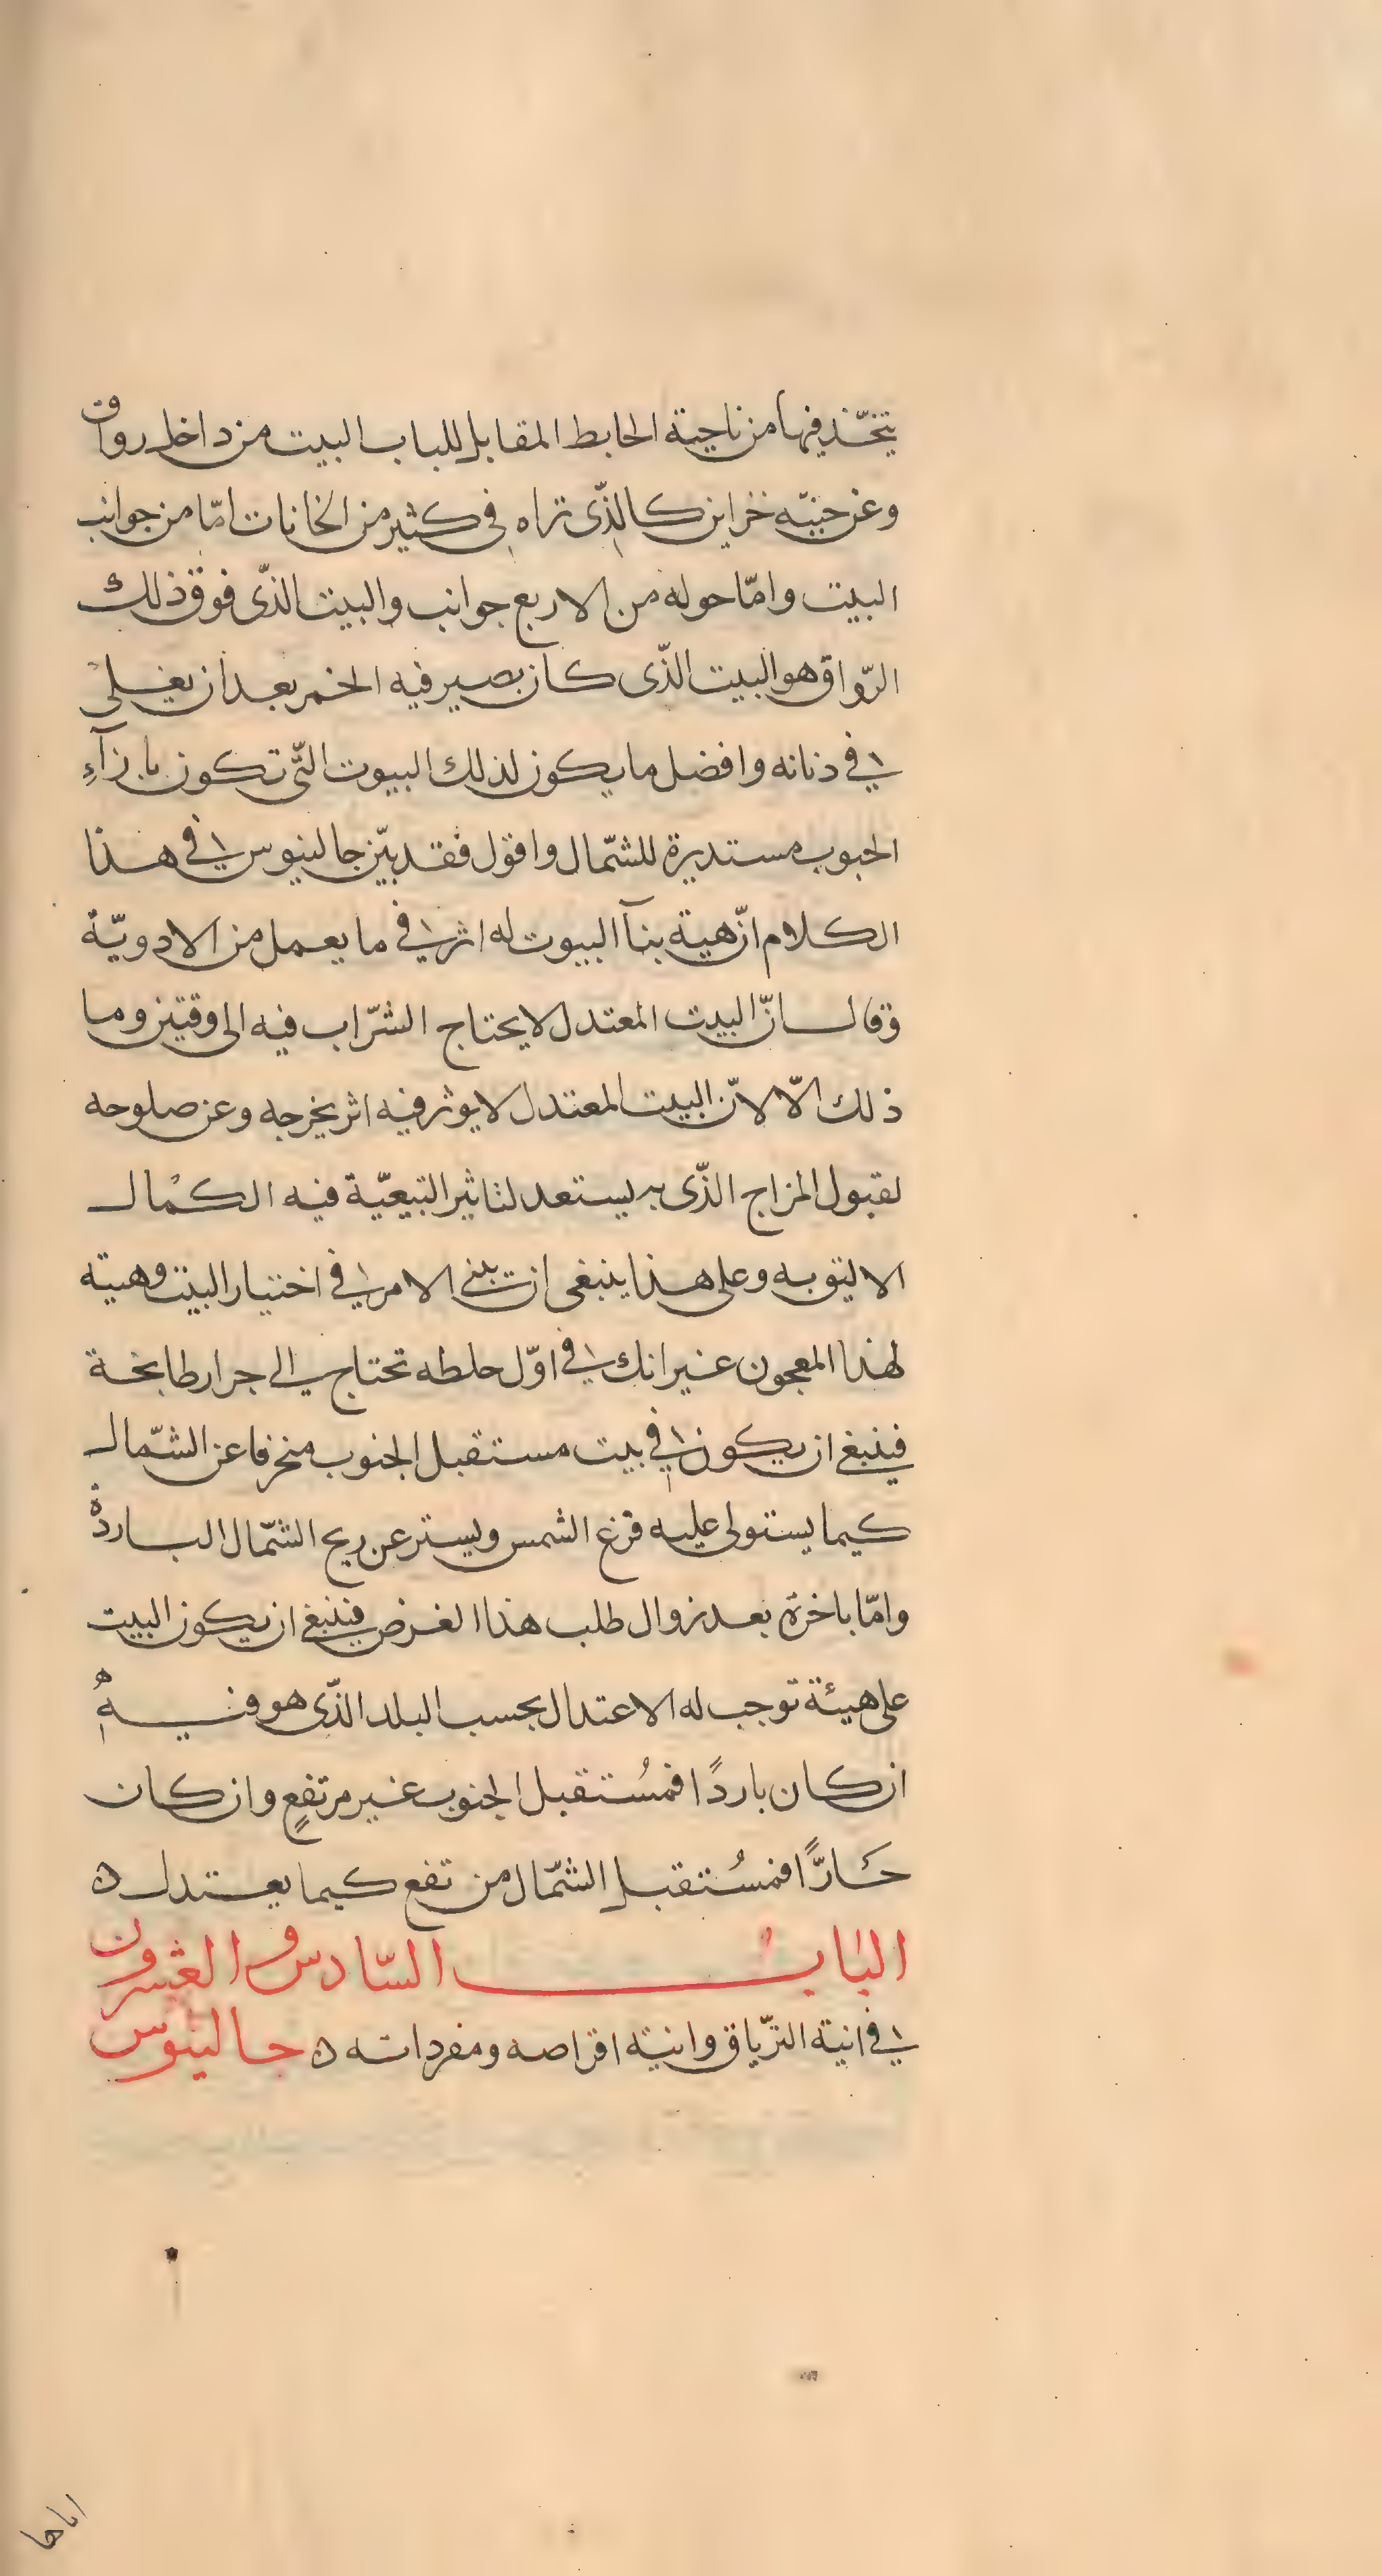 يتخّذ فيها من ناحية الحايط المقابل للباب البيت من داخل رواق
وعن جنبيّه خزاين كالذّى تراه فى كثير من الخانات امّا من جوانب
البيت وامّا حوله من الاربع جوانب والبيت الذّى فوق ذلك
الرّواق هو البيت الذّى كان يصير فيه الخمر بعد ان يغلى
فى دنانه وافضل ما يكون لذلك البيوت التّى تكون بازآء
الجبوب مستديرة للشّمال واقول فقد بيّن جالينوس فى هذا
الكلام انّ هية بنآ البيوت له اثر فى ما يعمل من الادويّة
وقال انّ البيت المعتدل لا يحتاج الشرّاب فيه الى وقتين وما
ذلك الّا لانّ البيت المعتدل لا يوثر فيه اثر يخرجه وعن صلوحه
لقبول المزاج الذّى به يستعد لتاثير التبيعيّة فيه الكمال
الاليتو به وعلى هذا ينبغى ان تبنى الامر فى اختيار البيت وهيته
لهذا المعجون غير انك فى اوّل خلطه تحتاج الى جرار طابخة
فينبغى ان يكون فى بيت مستقبل الجنوب منحرفا عن الشّمال
كيما يستولى عليه قرغ الشمس ويستر عن ريح الشّمال الباردة
وامّا باخرة بعد زوال طلب هذا الغرض فينبغى ان يكون البيت
على هيئة توجب له الاعتدال بحسب البلد الذّى هو فيهِ
ان كان باردًا فمُستقبل الجنوب غير مرتفعٍ وان كان
حَارًّا فمسُتقبل الشّمال مرتفع كيما يعتدل ه
البٰابُ السّادس و العشرون
فى انية الترّياق وانية اقراصه ومفرداته ه جالينوس
اماها